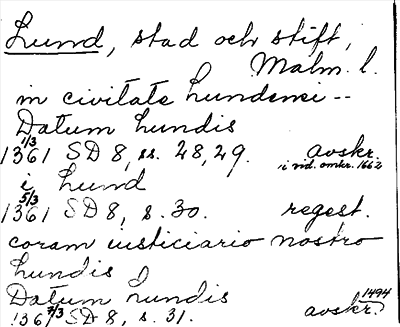 Lund, stad och stift,
Malm. l.
in civitate Lundensi --
Datum Lundis
1361 1/3 SD 8, ss. 28, 29. avskr.
i vid. omkr. 1662
i Lund
1361 5/3 SD 8, s. 30. regest.
coram iusticiario nostro
Lundis
Datum Lundis
1367/3 SD 8, s. 31. avskr. 1494